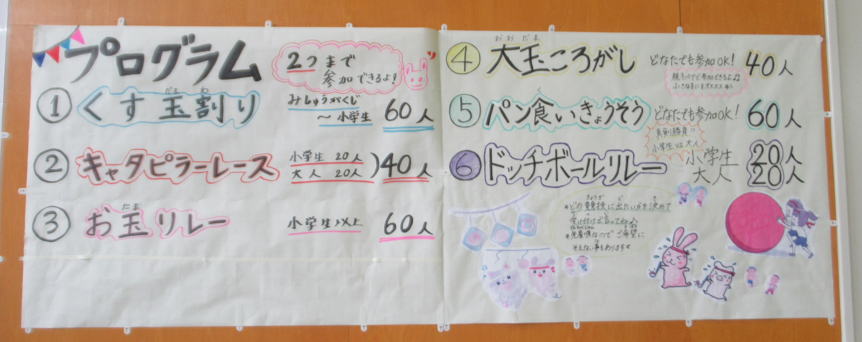 プログラム
2つまで
参加できるよ!
① くす玉割り
みしゅうがくじ
～小学生 60人
② キャタピラーレース
小学生 20人
大人 20人 )40人
③ お玉リレー
小学生以上 60人
④ 大玉ころがし
どなたでも参加OK! 40人
⑤ パン食いきょうそう
どなたでも参加OK! 60人
真剣勝負!!
小学生 vs 大人
⑥ ドッチボールリレー
小学生 20人
大人 20人